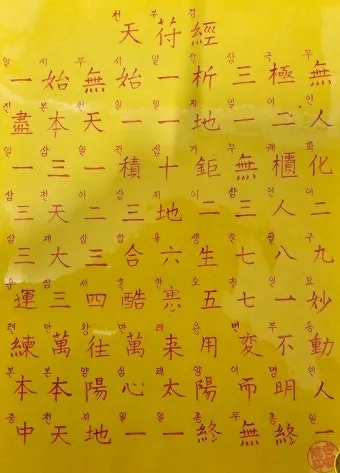 천 부 경
天 符 經
일 시 무 시 일 석 삼 극 무
一 始 無 始 一 析 三 極 無
진 본 천 일 일 지 일 이 인
盡 本 天 一 一 地 一 二 人
일 삼 일 적 십 거 무 궤 화
一 三 一 積 十 鉅 無 櫃 化
삼 천 이 삼 지 이 삼 인 이
三 天 二 三 地 二 三 人 二
삼 대 삼 합 육 생 칠 팔 구
三 大 三 合 六 生 七 八 九
운 삼 사 한 오 칠 일 묘
運 三 四 酷 寒 五 七 一 妙
련 만 왕 만 래 용 변 부 동
練 萬 往 萬 来 用 變 不 動
본 본 양 심 태 양 이 명 인
本 本 陽 心 太 陽 而 明 人
중 천 지 일 일 종 무 종 일
中 天 地 一 一 終 無 終 一